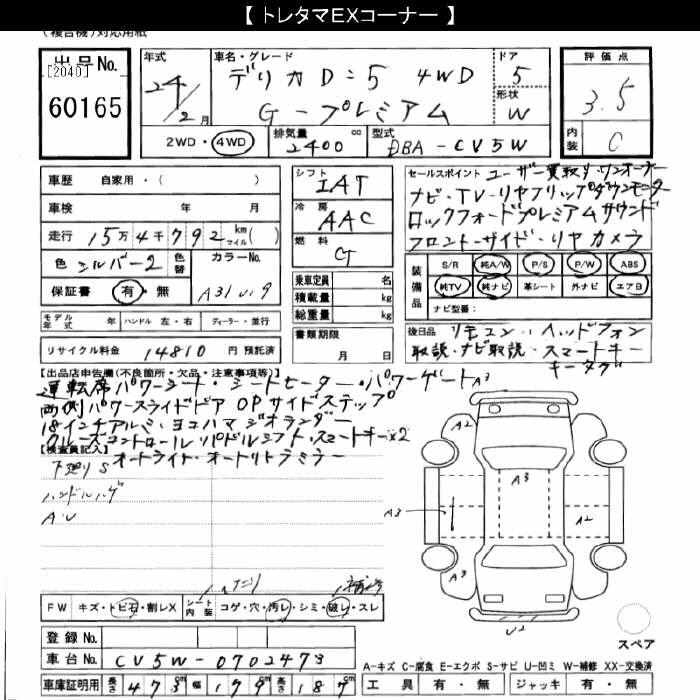 【 トレタマEXコーナー 】
(複合機)対応用紙
出品No.
[2040]
60165
年式
24/2月
車名・グレード
デリカD:5 4WD
G-プレミアム
ドア
5
形状
W
評価点
3.5
内装
C
2WD・4WD
排気量 2400 cc
型式 DBA-CV5W
車歴 自家用・( )
車検 年 月
走行 15万4千792 km マイル( )
色 シルバー2
色替
カラーNo. A31
保証書 有・無
シフト
IAT
冷房
AAC
燃料
G
乗車定員 名
積載量 kg
総重量 kg
書類期限
月 日
モデル年式 年 ハンドル 左・右 ディーラー・並行
リサイクル料金 14810 円 預託済
セールスポイント ユーザー買取り・ワンオーナー
ナビ・TV・リヤフリップダウンモニター
ロックフォードプレミアムサウンド
フロント・サイド・リヤカメラ
装備品
S/R 純A/W P/S P/W ABS
純TV 純ナビ 革シート 外ナビ エアB
ナビ型番:
後日品 リモコン・ヘッドフォン
取説・ナビ取説・スマートキー
キータグ
【出品店申告欄(不良箇所・欠品・注意事項等)】
運転席パワーシート・シートヒーター・パワーゲート
両側パワースライドドア OPサイドステップ
18インチアルミ・ヨコハマ ジオランダー
クルーズコントロール・パドルシフト・スマートキー×2
オートライト・オートリトラミラー
【検査員記入】
下廻りS
ハンドルハゲ
A・U
A3
A2
A3
A3
A2
A3
U2
FW キズ・トビ石・割レX
シート内装 コゲ・穴・汚レ・シミ・破レ・スレ
登録No.
車台No. CV5W-0702473
車庫証明用 長さ 473cm 幅 179cm 高さ 187cm
スペア
A-キズ C-腐食 E-エクボ S-サビ U-凹ミ W-補修 XX-交換済
工具 有・無 ジャッキ 有・無